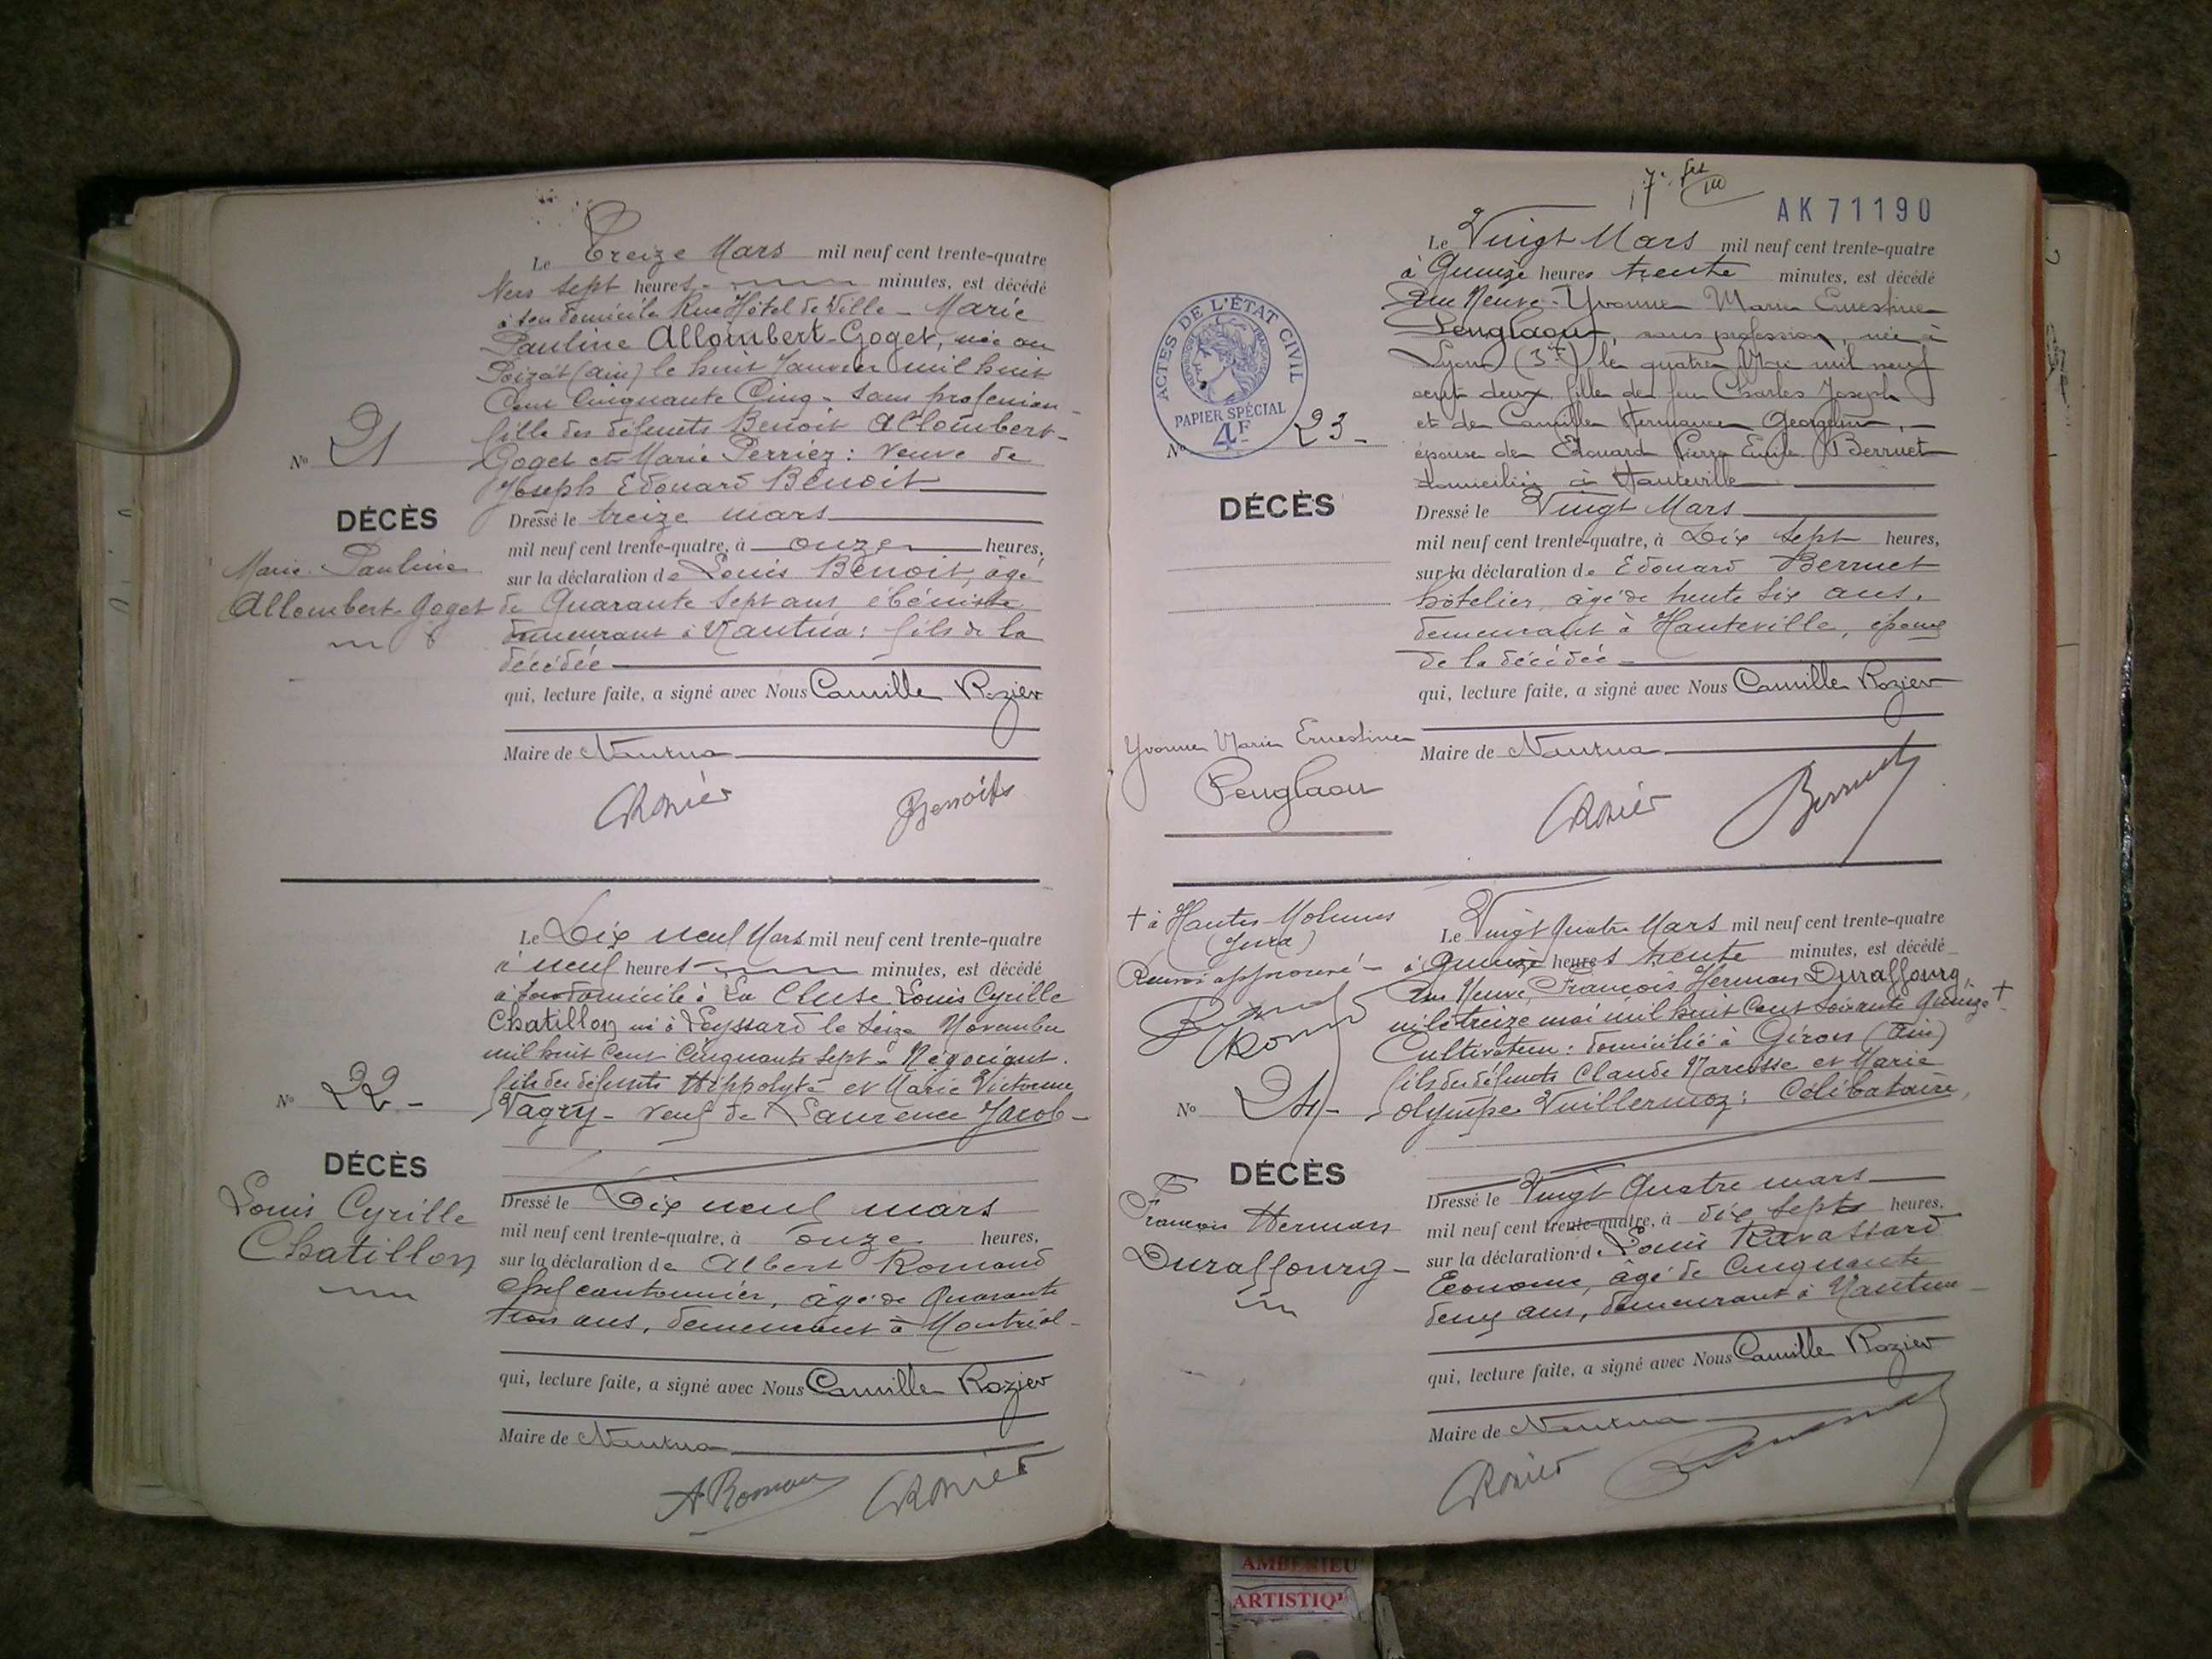 Le Treize Mars mil neuf cent trente-quatre
Vers sept heures minutes, est décédé
à son domicile Rue Hôtel de Ville - Marie
Pauline Allombert-Goget, née au
Poizat (Ain) le huit Janvier mil huit
Cent Cinquante Cinq - sans profession -
fille des défunts Benoit Allombert-
Goget et Marie Perriez : Veuve de
Joseph Edouard Benoit
Nº 21
DÉCÈS
Marie Pauline
Allombert-Goget
Dressé le treize mars
mil neuf cent trente-quatre, à onze heures,
sur la déclaration de Louis Benoit, âgé
de Quarante Sept ans ébéniste
demeurant à Nantua : fils de la
décédée
qui, lecture faite, a signé avec Nous Camille Rozier
Maire de Nantua
CRozier Benoit
Le Dix neuf Mars mil neuf cent trente-quatre
à neuf heures minutes, est décédé
à son domicile à La Cluse Louis Cyrille
Chatillon né à Leyssard le Seize Novembre
mil huit Cent Cinquante Sept - Négociant.
fils des défunts Hippolyte et Marie Victorine
Vagry - veuf de Laurence Jacob -
Nº 22 -
DÉCÈS
Louis Cyrille
Chatillon
Dressé le Dix neuf mars
mil neuf cent trente-quatre, à onze heures,
sur la déclaration de Albert Romand
chef cantonnier, âgé de Quarante
trois ans, demeurant à Montréal -
qui, lecture faite, a signé avec Nous Camille Rozier
Maire de Nantua
A Romand CRozier
17e fet
AK 71190
Le Vingt Mars mil neuf cent trente-quatre
à Quinze heures trente minutes, est décédé
Rue Neuve - Yvonne Marie Ernestine
Penglaou, sans profession, née à
Lyon (3e) le quatre Mai mil neuf
cent deux, fille de feu Charles Joseph
et de Camille Hermance Georgelin, -
épouse de Edouard Pierre Emile Berruet
domiciliée à Hauteville
ACTES DE L'ÉTAT CIVIL
RÉPUBLIQUE FRANÇAISE
PAPIER SPÉCIAL
4F
Nº 23 -
DÉCÈS
Yvonne Marie Ernestine
Penglaou
Dressé le Vingt Mars
mil neuf cent trente-quatre, à Dix Sept heures,
sur la déclaration de Edouard Berruet
hôtelier, âgé de trente Six ans.
demeurant à Hauteville, époux
de la décédée -
qui, lecture faite, a signé avec Nous Camille Rozier
Maire de Nantua
CRozier Berruet
† à Hautes-Molunes
(Jura)
Renvoi approuvé -
Le Vingt Quatre Mars mil neuf cent trente-quatre
à Quinze heures trente minutes, est décédé
Rue Neuve, François Herman Duraffourg,
né le treize mai mil huit Cent Soixante Quinze †
Cultivateur : domicilié à Giron (Ain)
fils des défunts Claude Narcisse et Marie
Olympe Vuillermoz : Célibataire,
Nº 24 -
DÉCÈS
François Herman
Duraffourg -
Dressé le Vingt Quatre mars
mil neuf cent trente-quatre, à dix sept heures,
sur la déclaration de Louis Ravassard
Econome, âgé de Cinquante
deux ans, demeurant à Nantua -
qui, lecture faite, a signé avec Nous Camille Rozier
Maire de Nantua
CRozier
AMBERIEU
ARTISTIQU